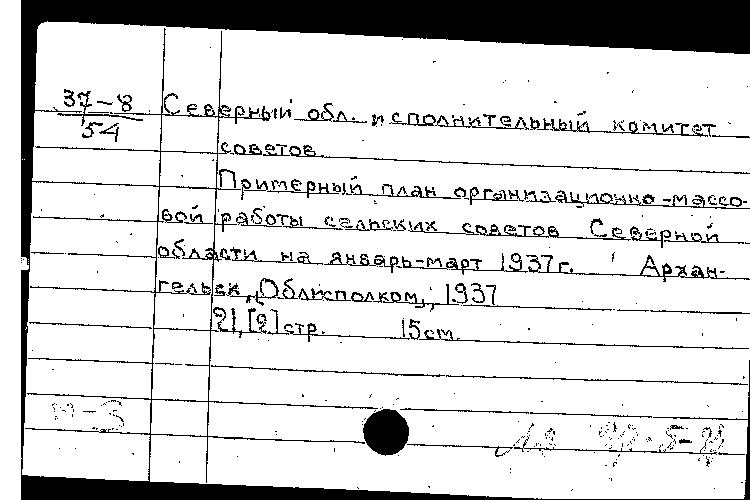 37-8
54
Северный обл. исполнительный комитет
советов.
Примерный план организационно-массо-
вой работы сельских советов Северной
области на январь-март 1937г. Архан-
гельск, „Облисполком", 1937
21, [2] стр. 15см.